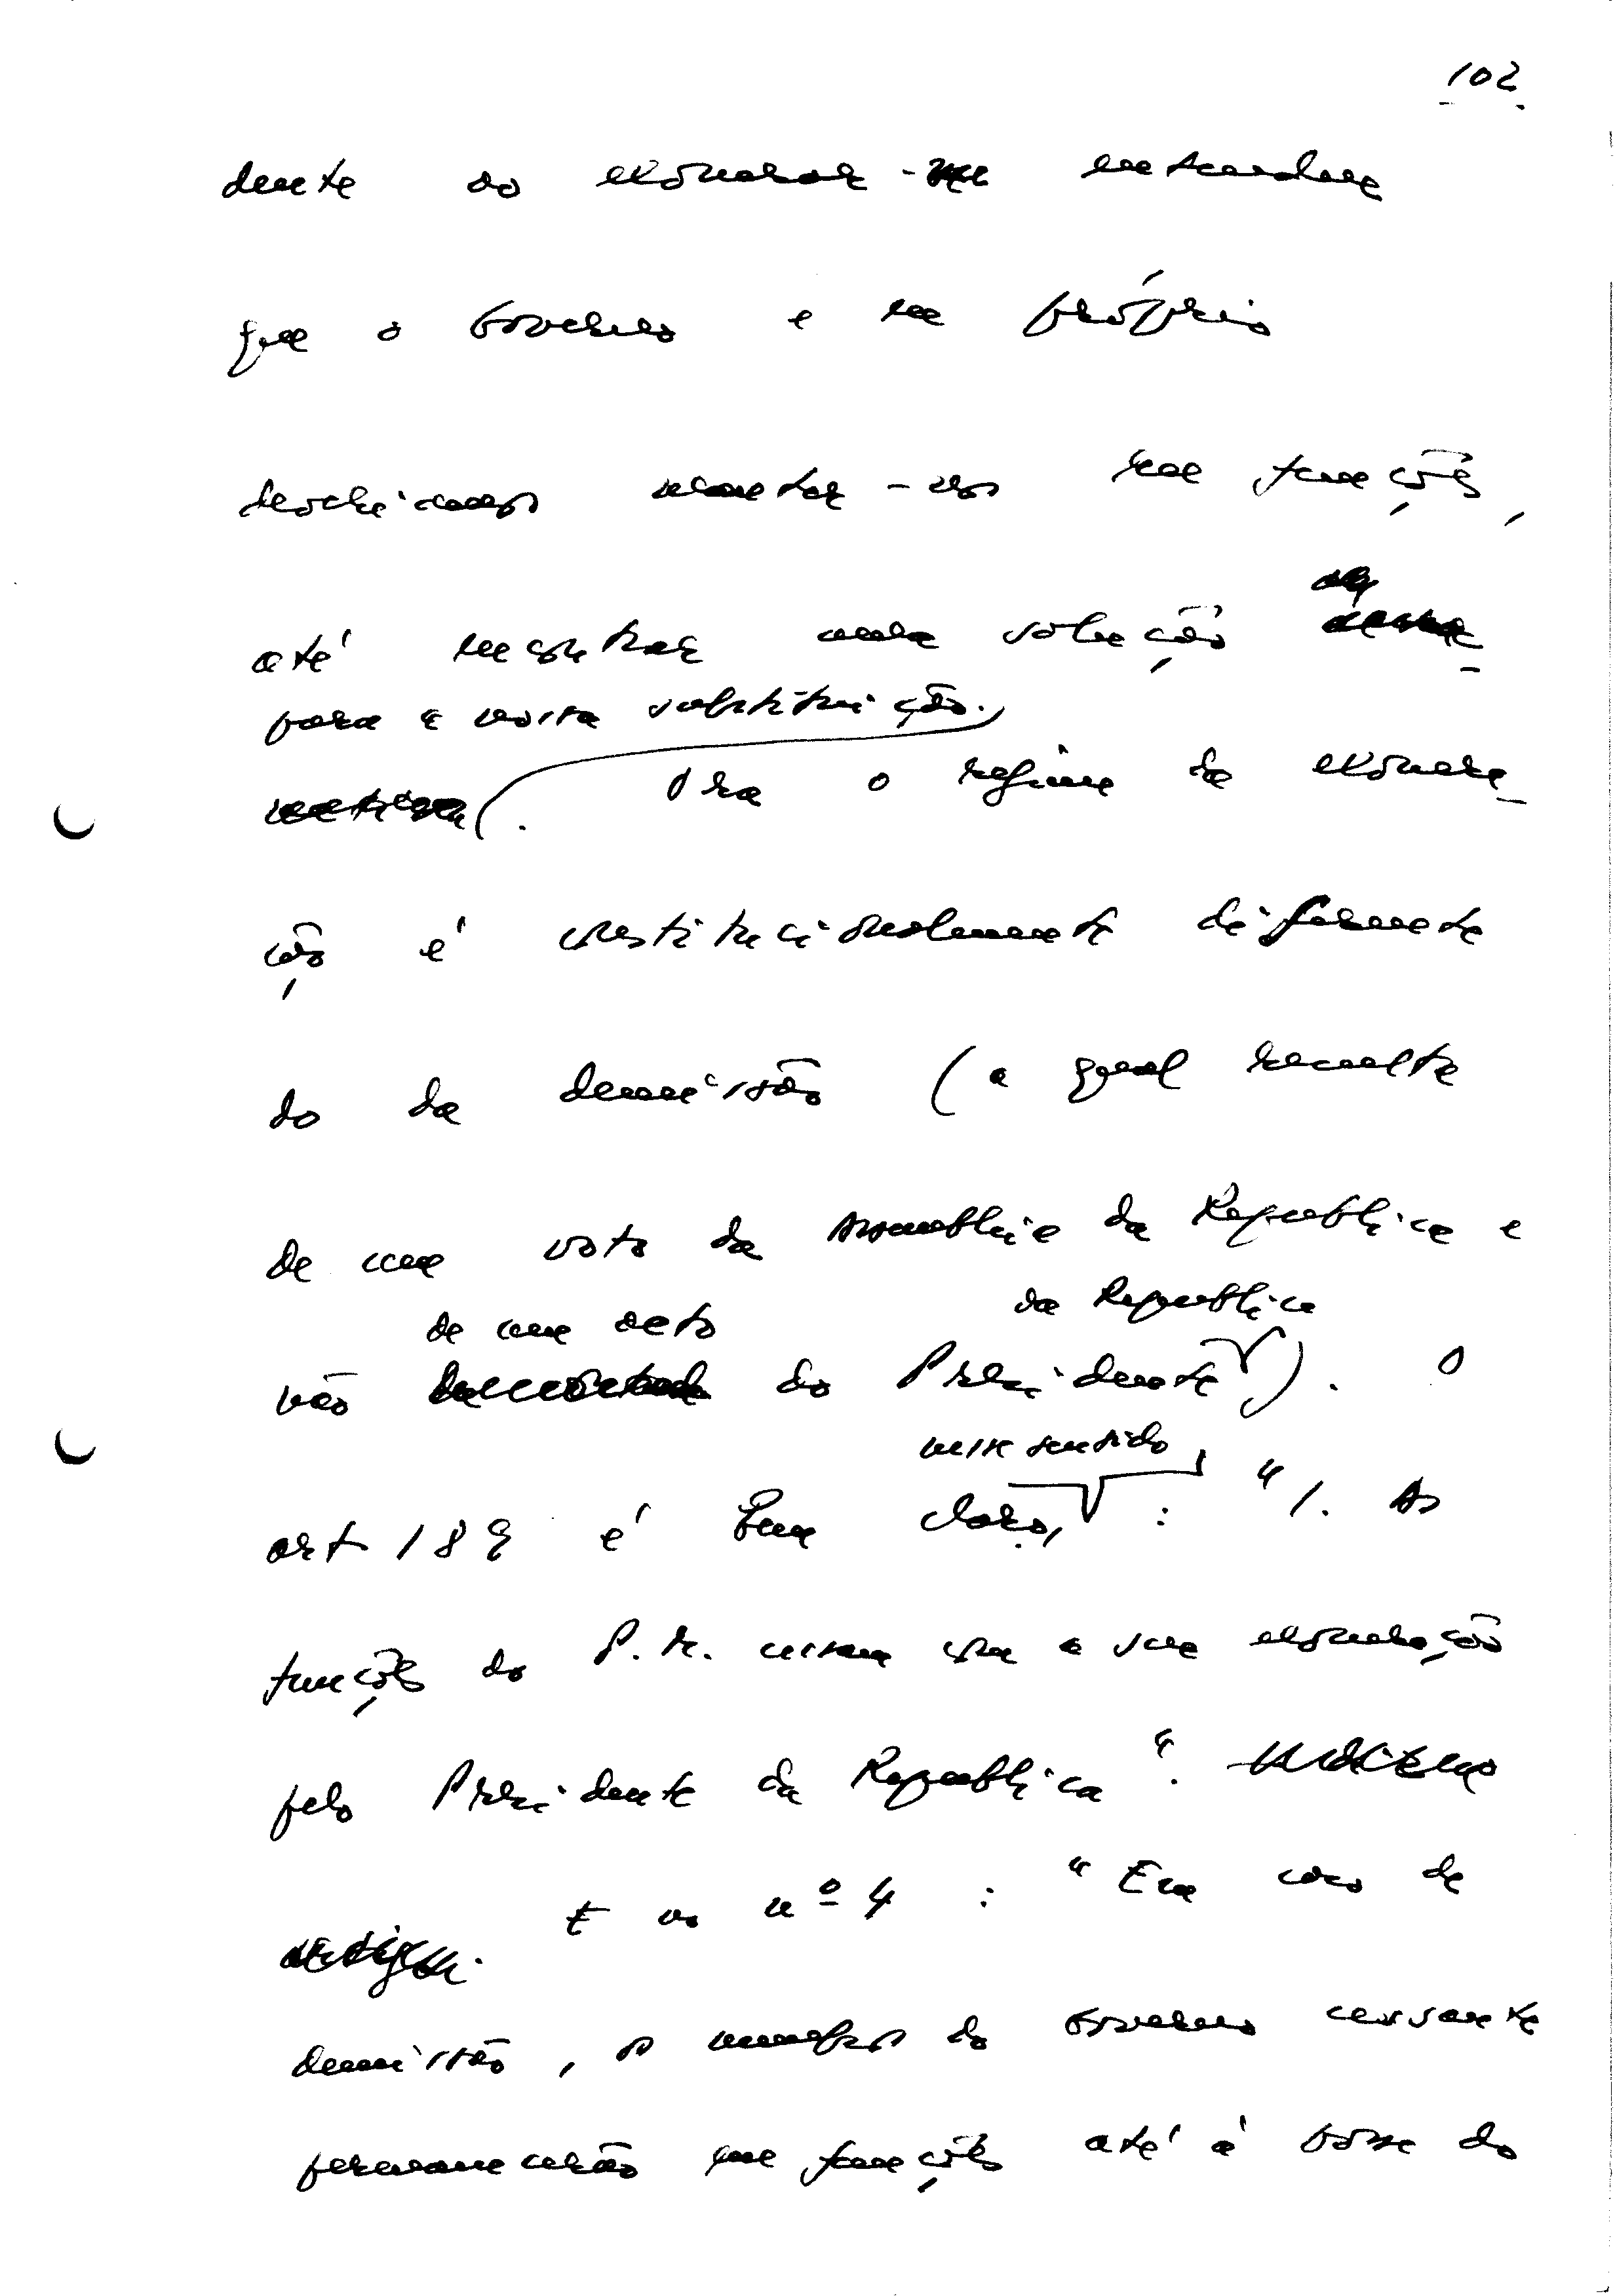 102
dente ao exonerar-me entendeu
que o Governo e eu próprio
deveríamos manter-nos em funções,
até encontrar uma solução
para a nossa substituição.
Ora o regime da exonera-
ção é constitucionalmente diferente
do da demissão (a qual resulta
de um voto da Assembleia da República e
de um acto da República
não do Presidente). O
nesse sentido,
art 189 é bem claro, : "1. As
funções do P.M. cessam com a sua exoneração
pelo Presidente da República".
E no nº 4 : "Em caso de
demissão, os membros do Governo cessante
permanecerão em funções até à posse do